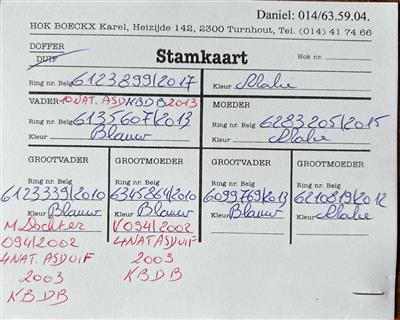 Daniel: 014/63.59.04.
HOK BOECKX Karel, Heizijde 142, 2300 Turnhout, Tel. (014) 41 74 66
DOFFER
DUIF
Stamkaart
Hok nr.
Ring nr. Belg 6123899/2017
Kleur Malie
VADER 10 NAT. ASD KBDB 2013
MOEDER
Ring nr. Belg 6135607/2013
Ring nr. Belg 6283205/2015
Kleur Blauw
Kleur Malie
GROOTVADER GROOTMOEDER GROOTVADER GROOTMOEDER
Ring nr. Belg Ring nr. Belg Ring nr. Belg Ring nr. Belg
6123339/2010 6345864/2010 6099769/2013 6210819/2012
Kleur Blauw Kleur Blauw Kleur Blauw Kleur Malie
M Dochter V 094/2002
094/2002 4 NAT ASDUIF
4 NAT. ASDUIF 2003
2003 KBDB
KBDB